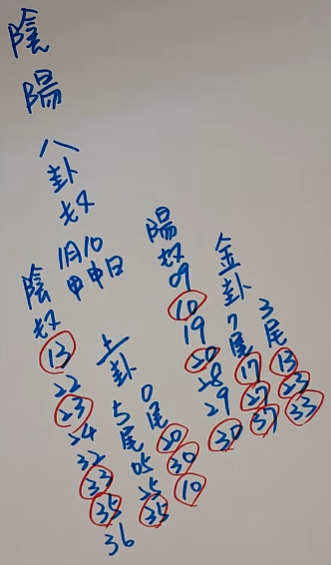 陰陽八卦奴
1月10
甲申日
陰奴 13 22 23 24 32 33 35 36
土卦
5尾 05 25 35
0尾 20 30 10
陽奴 09 10 19 20 28 29 30
金卦
7尾 17 27 37
3尾 13 23 33